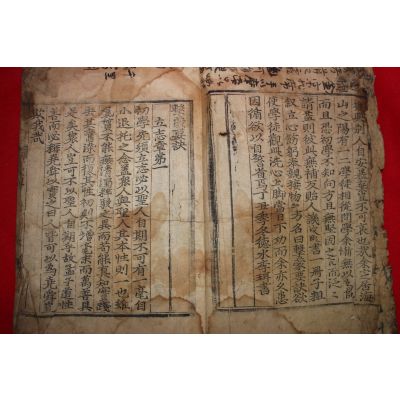 豈不可哀也哉余定居海
山之陽有一二學徒相從問學余慚無以爲師
而且恐初學不知向方且無堅固之志而泛泛
請益則彼與無補反貽人譏故略書一冊子粗
叙立心飭躬奉親接物之方名曰擊蒙要訣欲
使學徒觀此洗心立脚當日下功而余亦久患
因循欲以自警省焉丁丑季冬德水李珥書
擊蒙要訣
立志章第一
初學先須立志必以聖人自期不可有一毫自
小退托之念蓋衆人與聖人其本性則一也雖
氣質不能無淸濁粹駁之異而苟能眞知實踐
去其舊染而復其性初則不增毫末而萬善具
足矣衆人豈可不以聖人自期乎故孟子道性
善而必稱堯舜以實之曰人皆可以爲堯舜豈
欺我哉